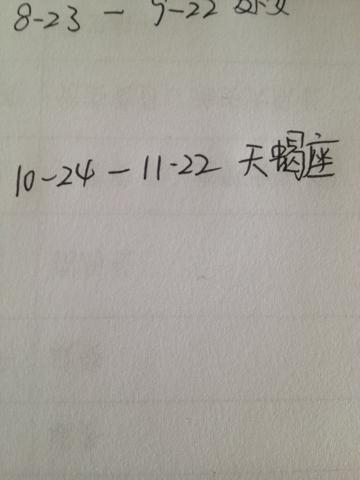 8-23 — 9-22 处女
10-24 — 11-22 天蝎座